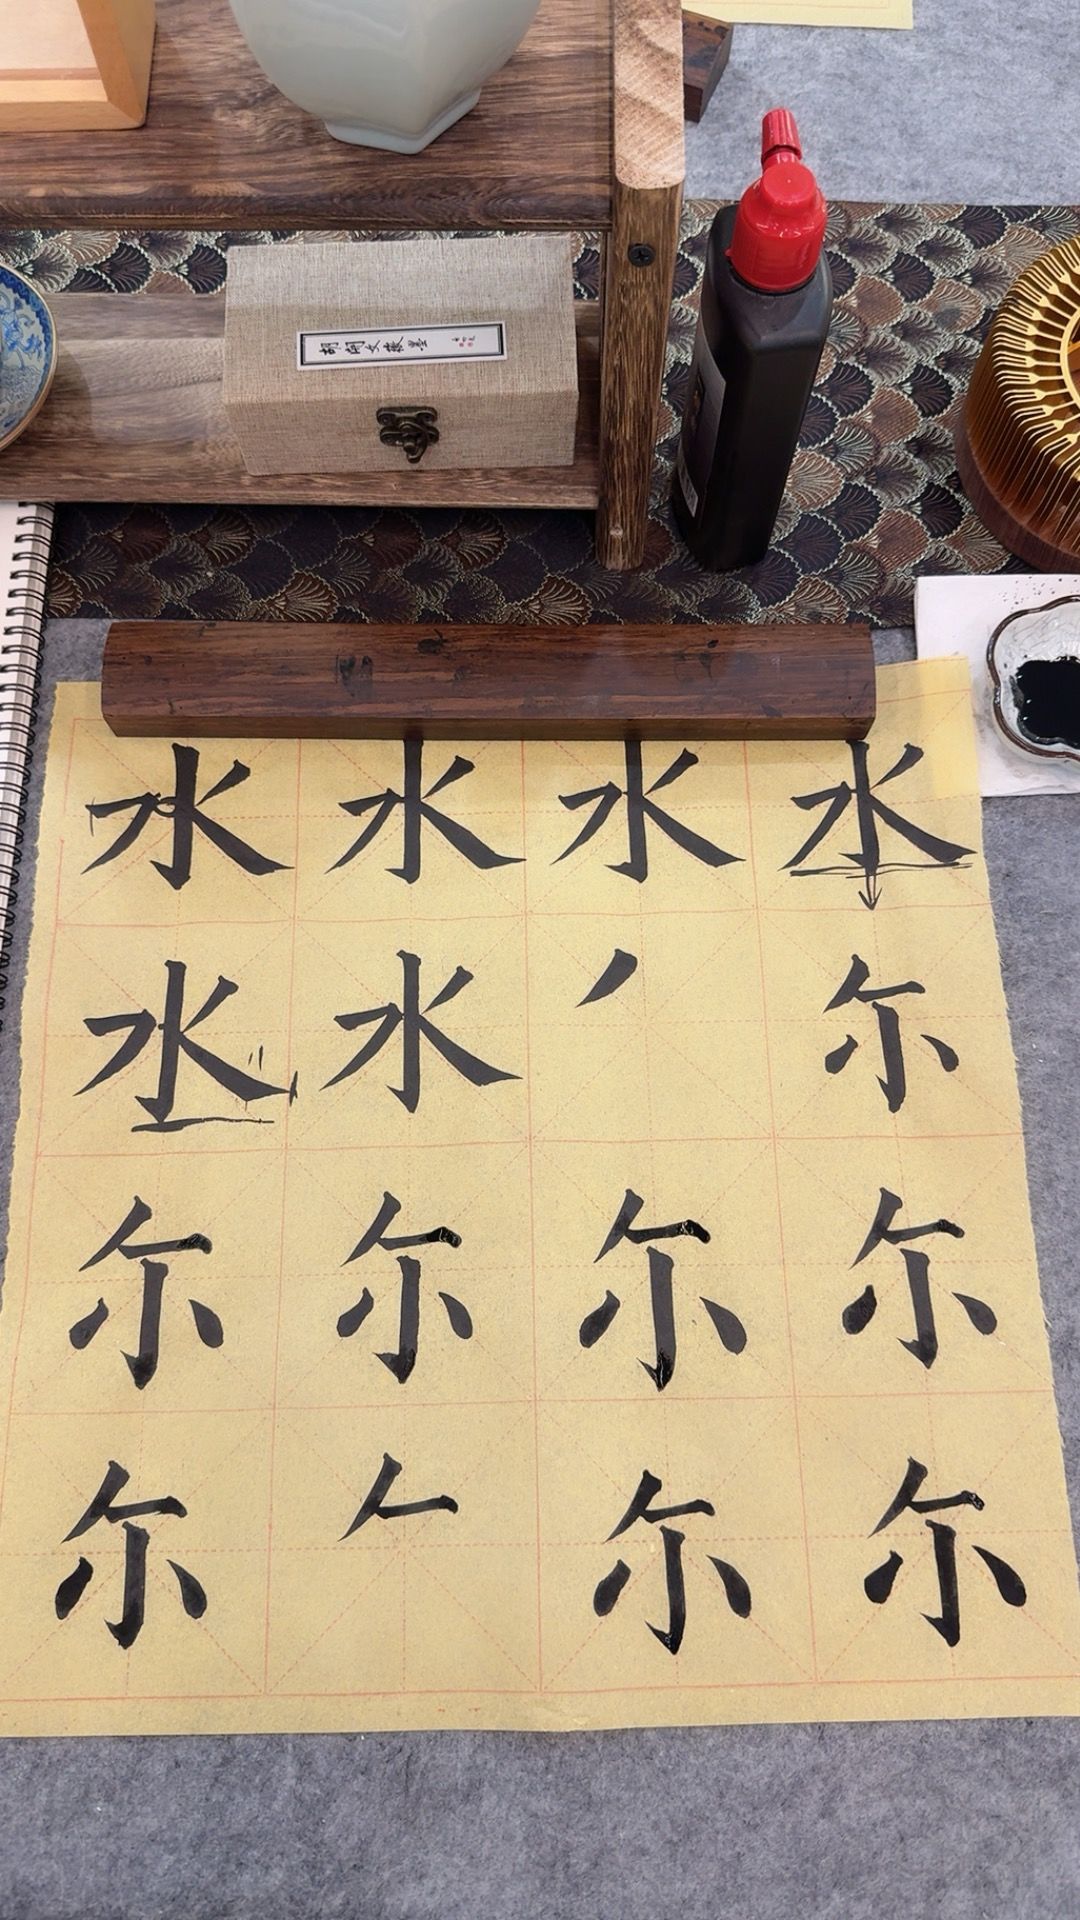 胡開文徽墨
水 水 水 水
水 水 丿 尔
尔 尔 尔 尔
尔 𠂉 尔 尔